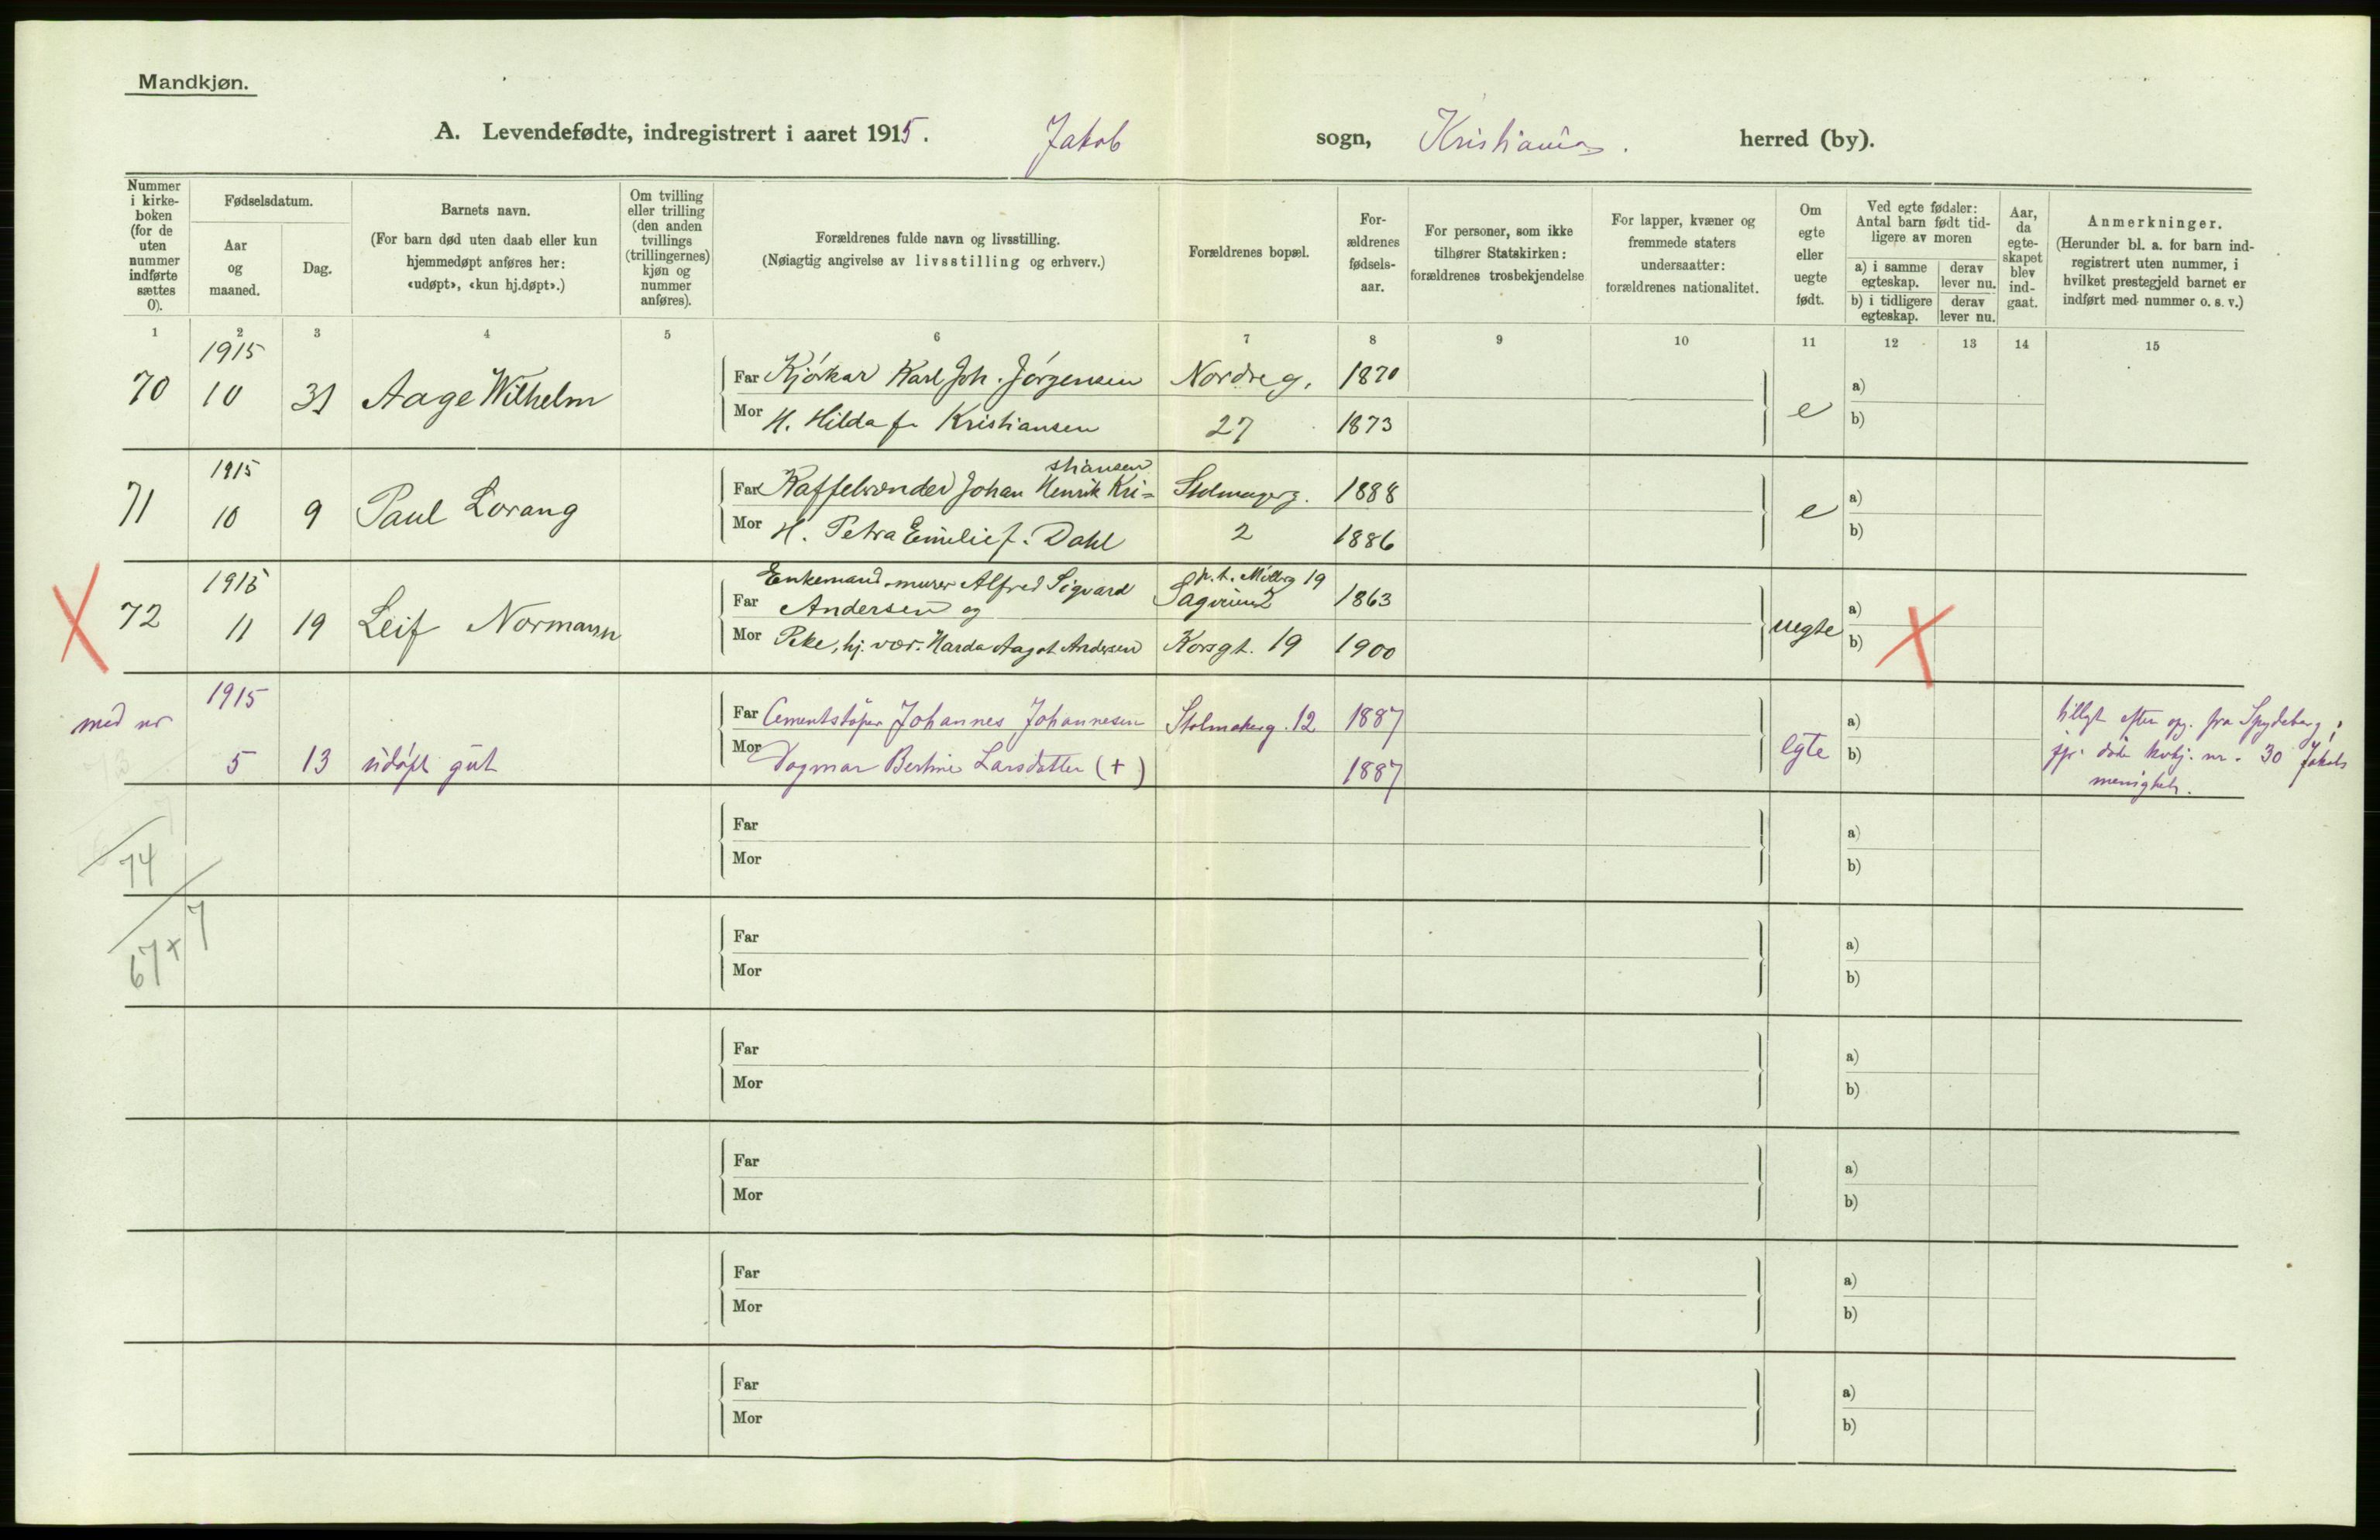 Mandkjøn.
A. Levendefødte, indregistrert i aaret 1915. Jakob sogn, Kristiania. herred (by).
Nummer i kirkeboken (for de uten nummer indførte sættes 0).
Fødselsdatum.
Aar og maaned.
Dag.
Barnets navn.
(For barn død uten daab eller kun hjemmedøpt anføres her: «udøpt», «kun hj.døpt».)
Om tvilling eller trilling (den anden tvillings (trillingernes) kjøn og nummer anføres).
Forældrenes fulde navn og livsstilling.
(Nøiagtig angivelse av livsstilling og erhverv.)
Forældrenes bopæl.
Forældrenes fødselsaar.
For personer, som ikke tilhører Statskirken: forældrenes trosbekjendelse
For lapper, kvæner og fremmede staters undersaatter: forældrenes nationalitet.
Om egte eller uegte født.
Ved egte fødsler: Antal barn født tidligere av moren
a) i samme egteskap. derav lever nu.
b) i tidligere egteskap. derav lever nu.
Aar, da egteskapet blev indgaat.
Anmerkninger.
(Herunder bl. a. for barn indregistrert uten nummer, i hvilket prestegjeld barnet er indført med nummer o. s. v.)
1 2 3 4 5 6 7 8 9 10 11 12 13 14 15
1915
70 10 31 Aage Wilhelm Far Kjørkar Karl Joh. Jørgensen Nordreg. 1870 e a)
Mor H. Hilda f. Kristiansen 27 1873 b)
1915 stiansen
71 10 9 Paul Lorang Far Johan Henrik Kri- 1888 e a)
Mor H. Petra Emilie f. Dahl 2 1886 b)
1915 Enkemand murer Alfred Sigvard p.t. Møllerg 19
72 11 19 Leif Normann Far Andersen og 1863 uegte a)
Mor Pike, hj. vær. Harda Aagot Andersen Korsgt. 19 1900 b)
1915
med nr Far Cementstøper Johannes Johannesen Stolmakerg. 12 1887 a) tillagt efter opg. fra Spydeberg;
5 13 udøpt gut Mor Dagmar Bertine Larsdatter (+) 1887 egte b) jfr. døde kvkj. nr. 30 Jakobs
menighet.
74
67 + 7
Far a)
Mor b)
Far a)
Mor b)
Far a)
Mor b)
Far a)
Mor b)
Far a)
Mor b)
Far a)
Mor b)